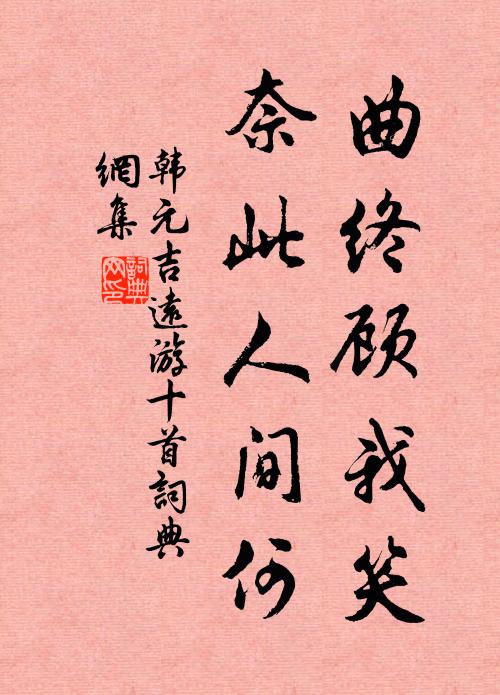 曲终顾我笑
奈此人间何
韩元吉遠游十首詞典
網集
詞典網印